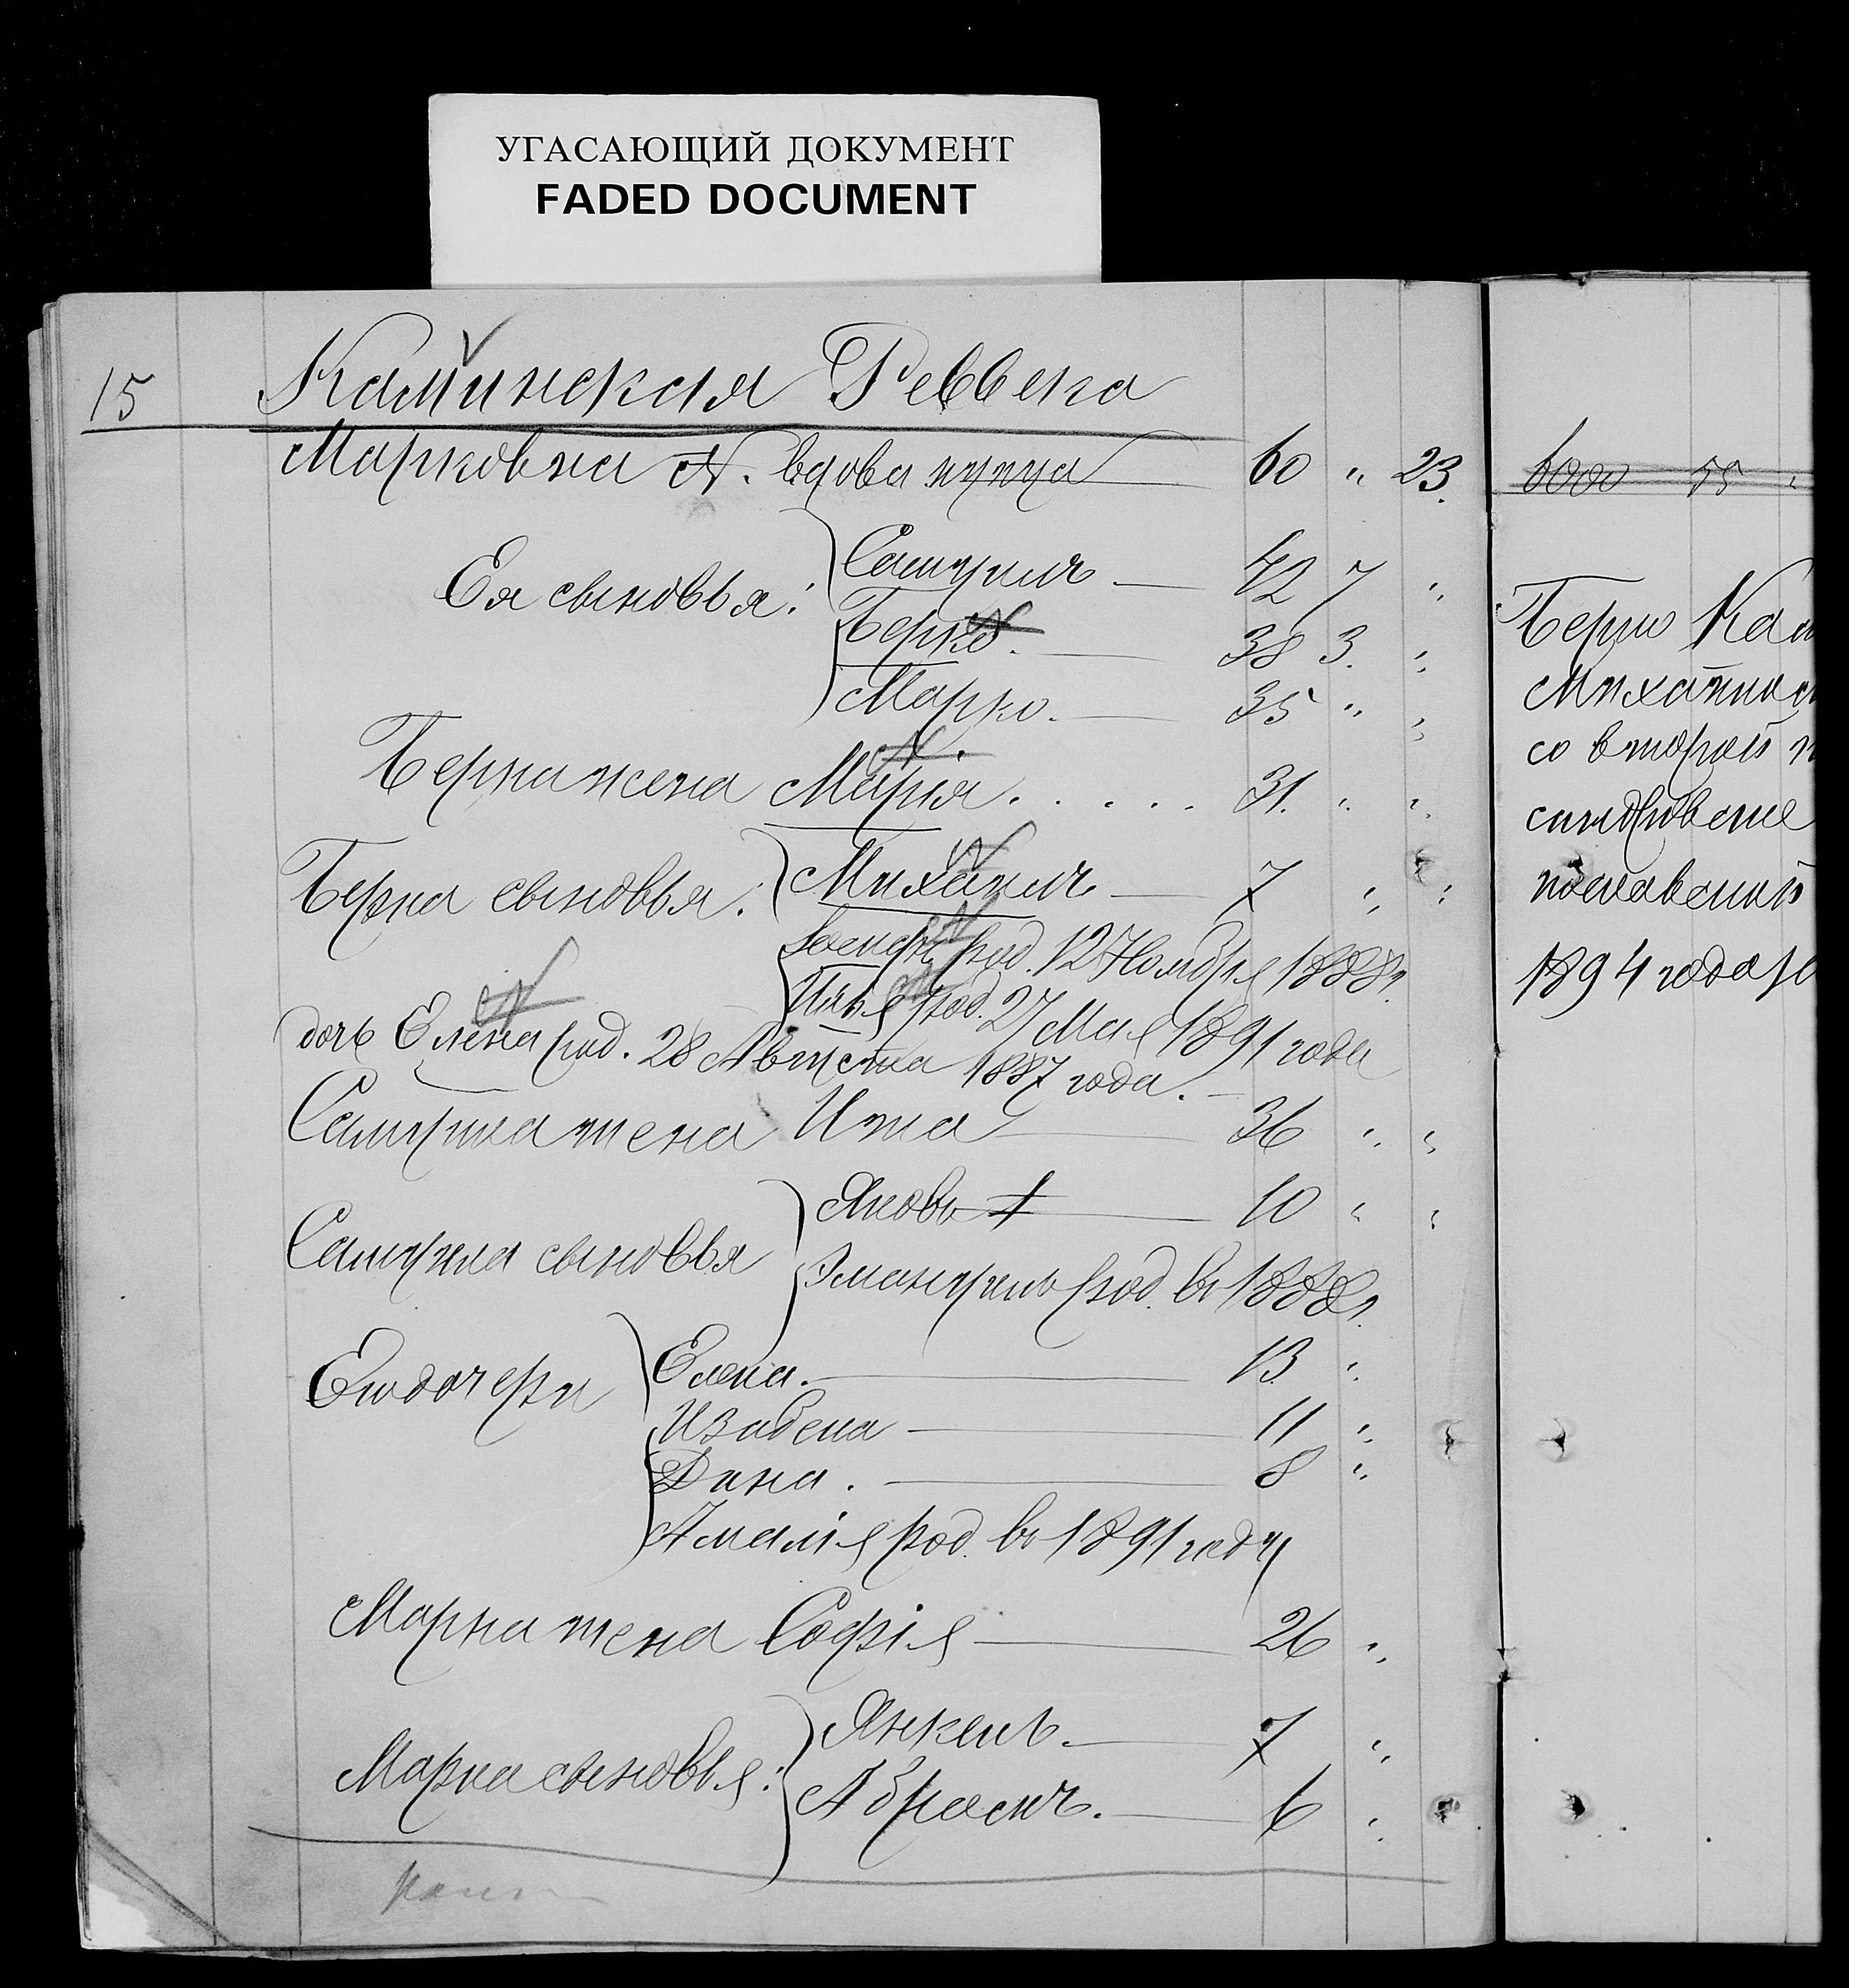 УГАСАЮЩИЙ ДОКУМЕНТ
FADED DOCUMENT
15 Каминская Реввека
Марковна N. вдова купца 60 " 23.
6000 55
Ея сыновья: Самуилъ — 42 7 "
Берко. — 38 3. "
Марко. — 35 " "
Берка жена Марія. . . . . 31. " "
Берка сыновья: Михаилъ — 7 " "
Іосифъ род. 12 Ноября 1888 г.
Илья род. 27 Мая 1891 года
дочь Елена род. 28 Августа 1887 года. —
Самуила жена Ита — 36 " "
Самуила сыновья Яковъ — 10 " "
Эмануилъ род. въ 1888 г.
Его дочери Елена. — 13 "
Изабела — 11 "
Дина. — 8 "
Амалія род. въ 1891 году
Марка жена Софія — 26 "
Марка сыновья: Янкель. — 7 "
Абрамъ. — 6 "
Берко Кам
Михаилом
со второй
поставеній
1894 года